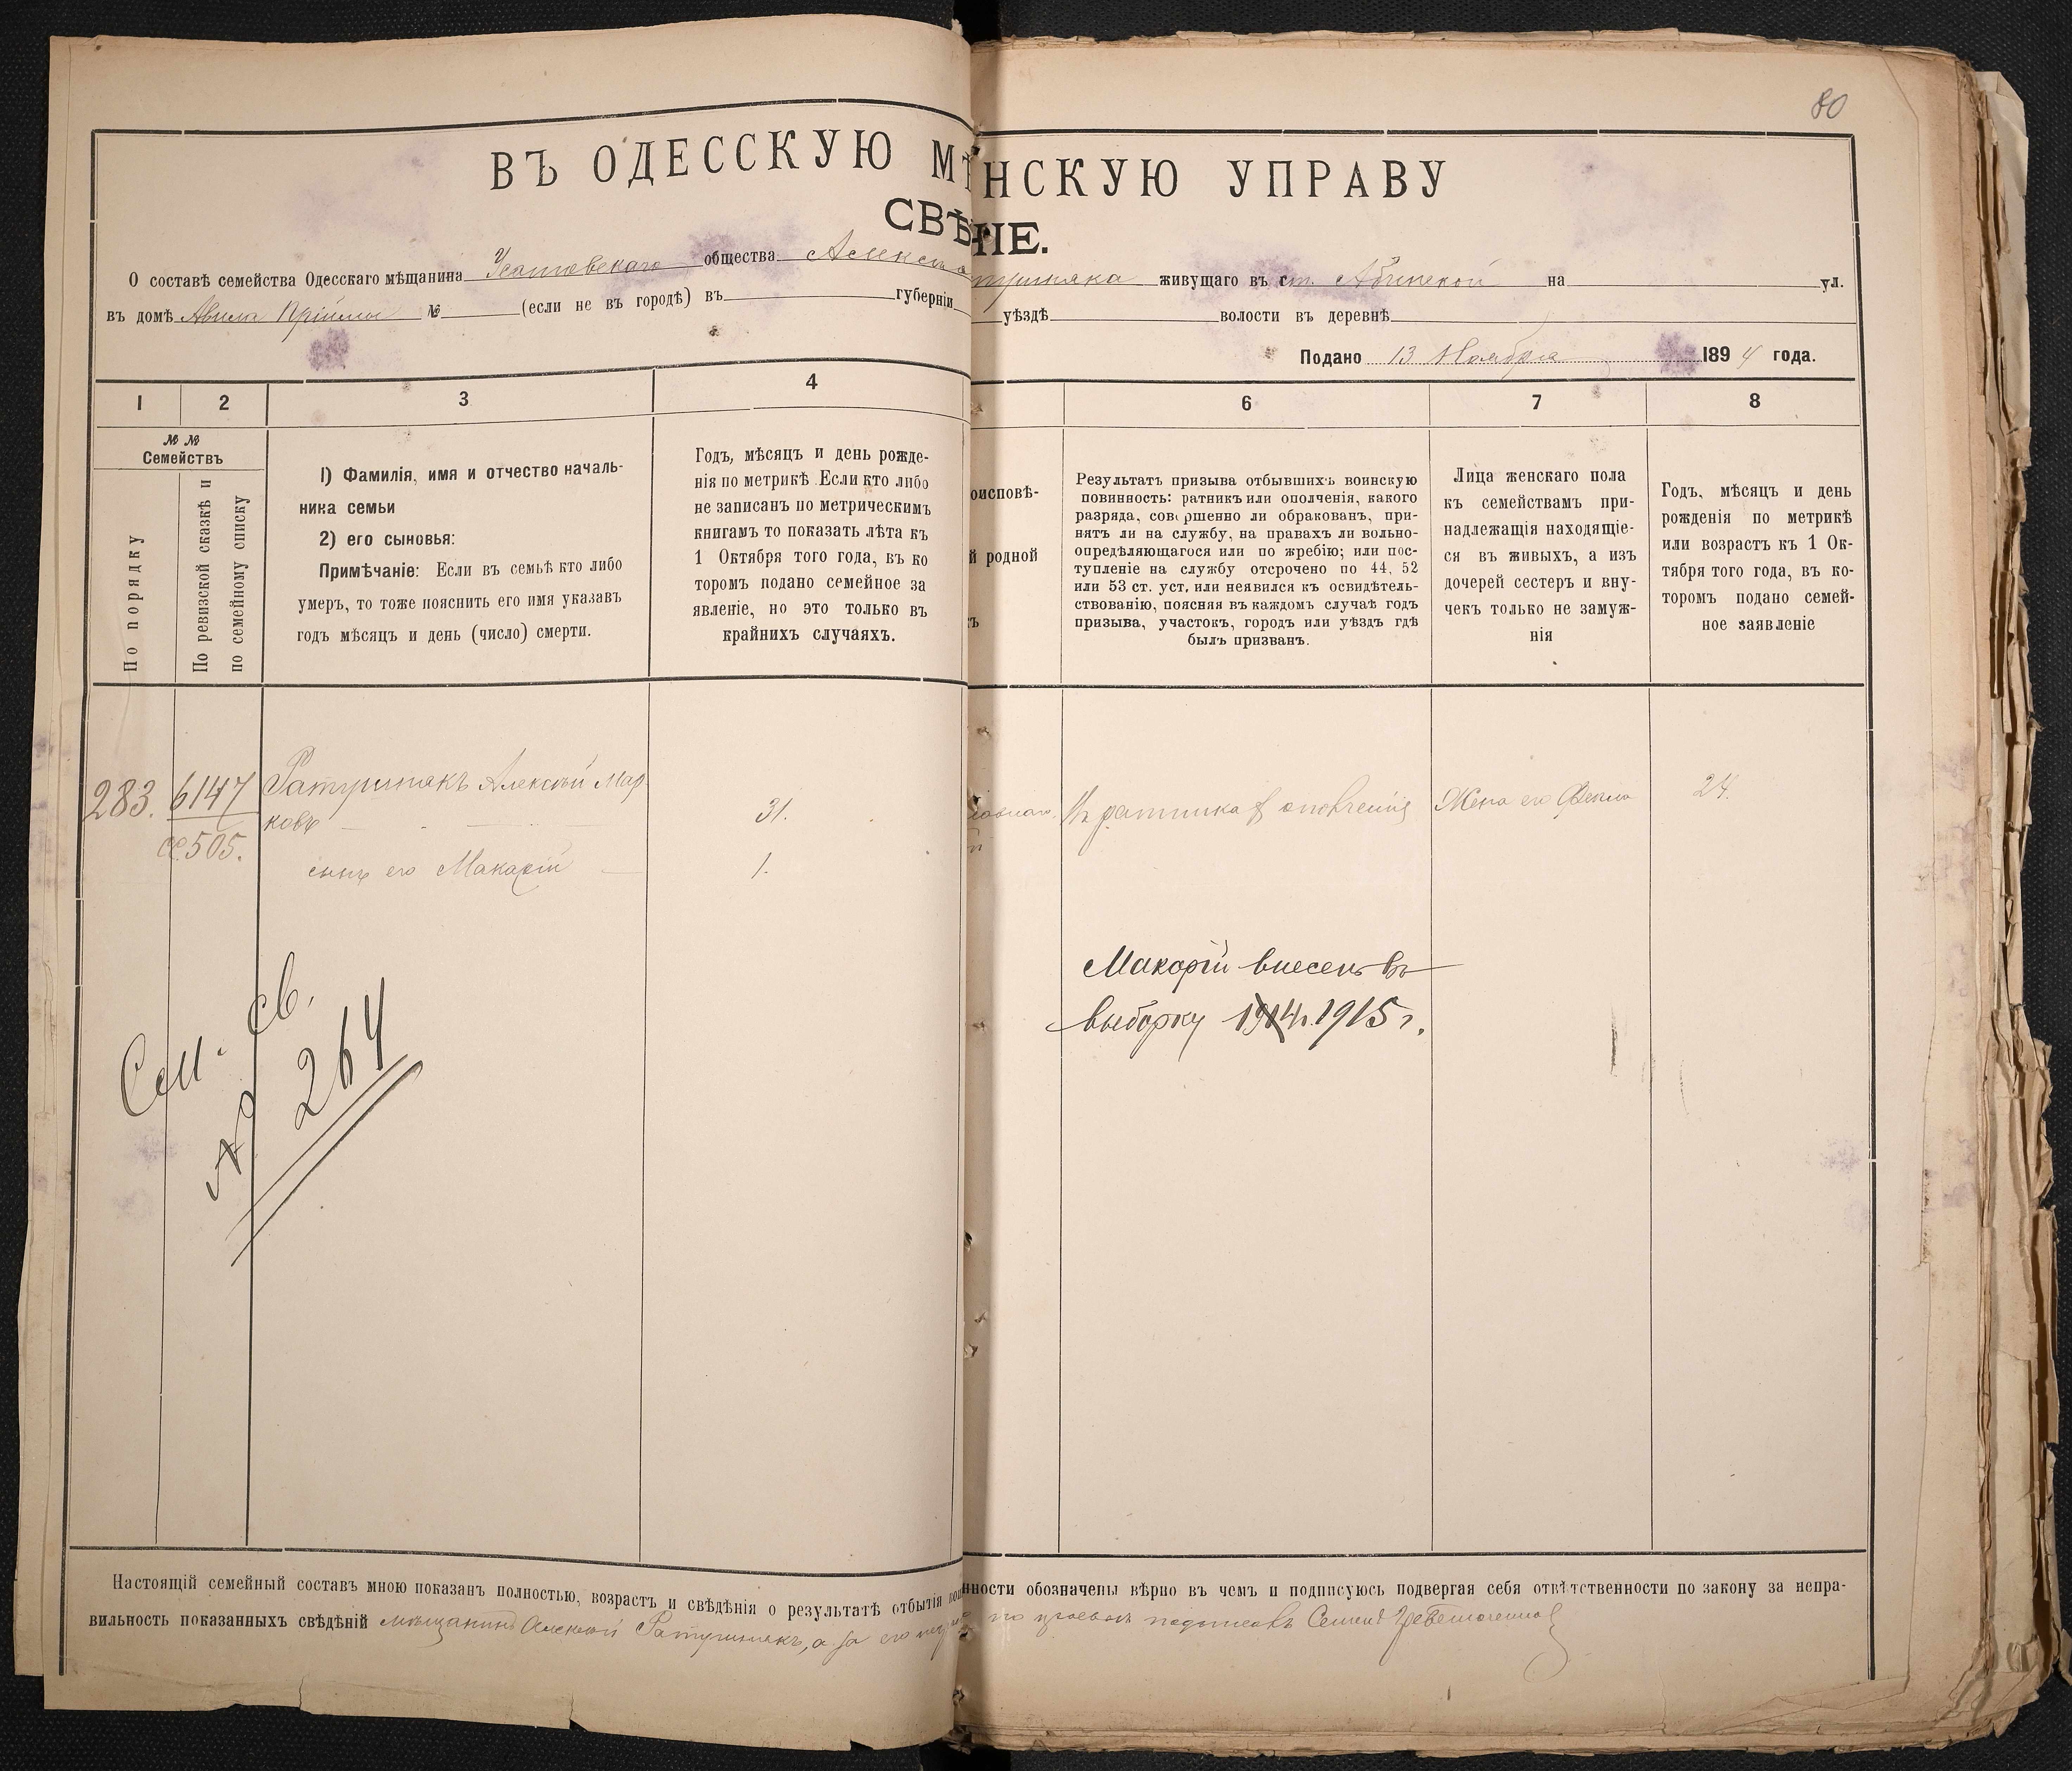 80
ВЪ ОДЕССКУЮ МѢ НСКУЮ УПРАВУ
СВѢ НІЕ.
О составѣ семейства Одесскаго мѣщанина Усатовскаго общества Алексѣ тушняка живущаго въ ст. Абинской на ул.
въ домѣ Прiймы № (если не въ городѣ) въ губерніи уѣздѣ волости въ деревнѣ
Подано 13 Ноября 1894 года.
1 2 3 4 6 7 8
№ №
Семействъ
По порядку
По ревизской сказкѣ и
по семейному списку
1) Фамилія, имя и отчество началь-
ника семьи
2) его сыновья:
Примѣчаніе: Если въ семьѣ кто либо
умеръ, то тоже пояснить его имя указавъ
годъ мѣсяцъ и день (число) смерти.
Годъ, мѣсяцъ и день рожде-
нія по метрикѣ Если кто либо
не записанъ по метрическимъ
книгамъ то показать лѣта къ
1 Октября того года, въ ко
торомъ подано семейное за
явленіе, но это только въ
крайнихъ случаяхъ.
оисповѣ-
й родной
ъ
Результатъ призыва отбывшихъ воинскую
повинность: ратникъ или ополченія, какого
разряда, совершенно ли обракованъ, при-
нятъ ли на службу, на правахъ ли вольно-
опредѣляющагося или по жребію; или пос-
тупленіе на службу отсрочено по 44, 52
или 53 ст. уст, или неявился къ освидѣтель-
ствованію, поясняя въ каждомъ случаѣ годъ
призыва, участокъ, городъ или уѣздъ гдѣ
былъ призванъ.
Лица женскаго пола
къ семействамъ при-
надлежащія находящіе-
ся въ живыхъ, а изъ
дочерей сестеръ и вну-
чекъ только не замуж-
нія
Годъ, мѣсяцъ и день
рожденія по метрикѣ
или возрастъ къ 1 Ок-
тября того года, въ ко-
торомъ подано семей-
ное заявленіе
283. 6147 Ратушнякъ Алексѣй Мар-
ковъ 31. ратника ополченія Жена его Фекла 24.
се505.
сынъ его Макарій 1.
Макарій внесенъ въ
выборку 1914г. 1915 г.
Сем. св.
№ 264
Настоящій семейный составъ мною показанъ полностью, возрастъ и свѣдѣнія о результатѣ отбытія нности обозначены вѣрно въ чемъ и подписуюсь подвергая себя отвѣтственности по закону за непра-
вильность показанныхъ свѣдѣній мѣщанинъ Алексѣй Ратушнякъ, а за его по просьбѣ Семенъ